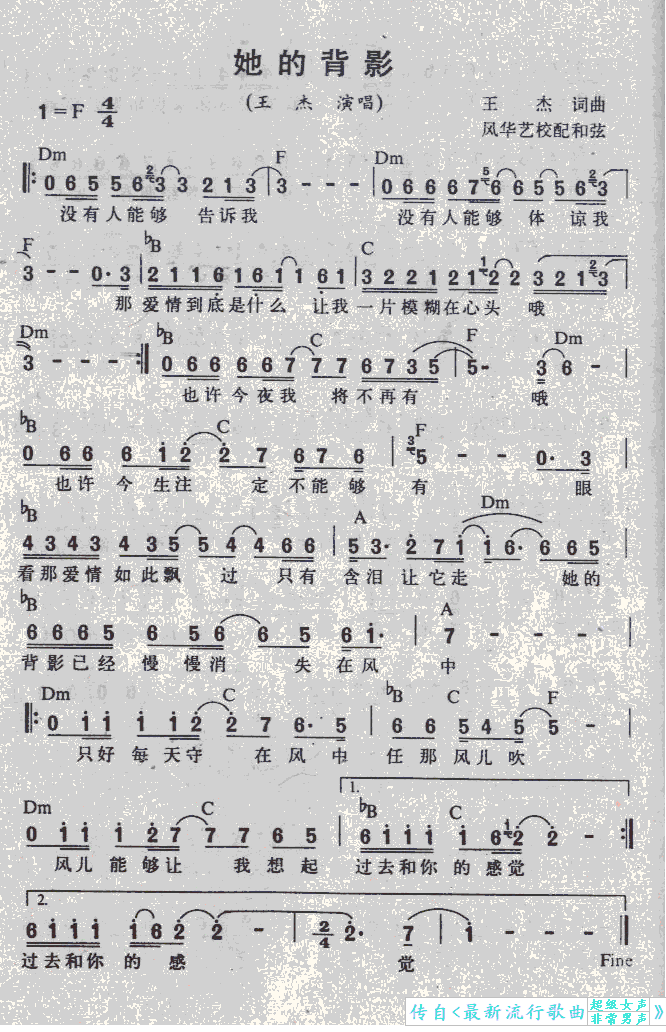 她的背影
1=F 4/4
(王 杰 演唱)
王 杰 词曲
风华艺校配和弦
Dm F Dm
0 6 5 5 6 3 3 2 1 3 3 - - - 0 6 6 6 7 6 6 5 5 6 3
没有人能够 告诉我 没有人能够 体 谅我
F ♭B C
3 - - 0· 3 2 1 1 6 1 6 1 1 6 1 3 2 2 1 2 1 2 2 3 2 1 3
那 爱情到底是什么 让我一片模糊在心头 哦
Dm ♭B C F Dm
3 - - - 0 6 6 6 6 7 7 7 6 7 3 5 5· - 3 6 -
也许今夜我 将不再有 哦
♭B C F
0 6 6 6 1 2 2 7 6 7 6 5 - - 0· 3
也许 今 生注 定 不能够 有 眼
♭B A Dm
4 3 4 3 4 3 5 5 4 4 6 6 5 3· 2 7 1 1 6· 6 6 5
看那爱情 如此飘 过 只有 含泪让它走 她的
♭B A
6 6 6 5 6 5 6 6 5 6 1· 7 - - -
背影已经 慢 慢消 失在风 中
Dm C ♭B C F
0 1 1 1 1 2 2 7 6· 5 6 6 5 4 5 5 -
只好 每 天守 在 风 中 任 那 风儿吹
1.
Dm C ♭B C
0 1 1 1 2 7 7 7 6 5 6 1 1 1 1 6 2 2 -
风儿 能够让 我想起 过去和你 的 感觉
2.
6 1 1 1 1 6 2 2 - 2/4 2· 7 1 - - -
过去和你 的 感 觉 Fine
传自<最新流行歌曲 超级女声 非常男声 》